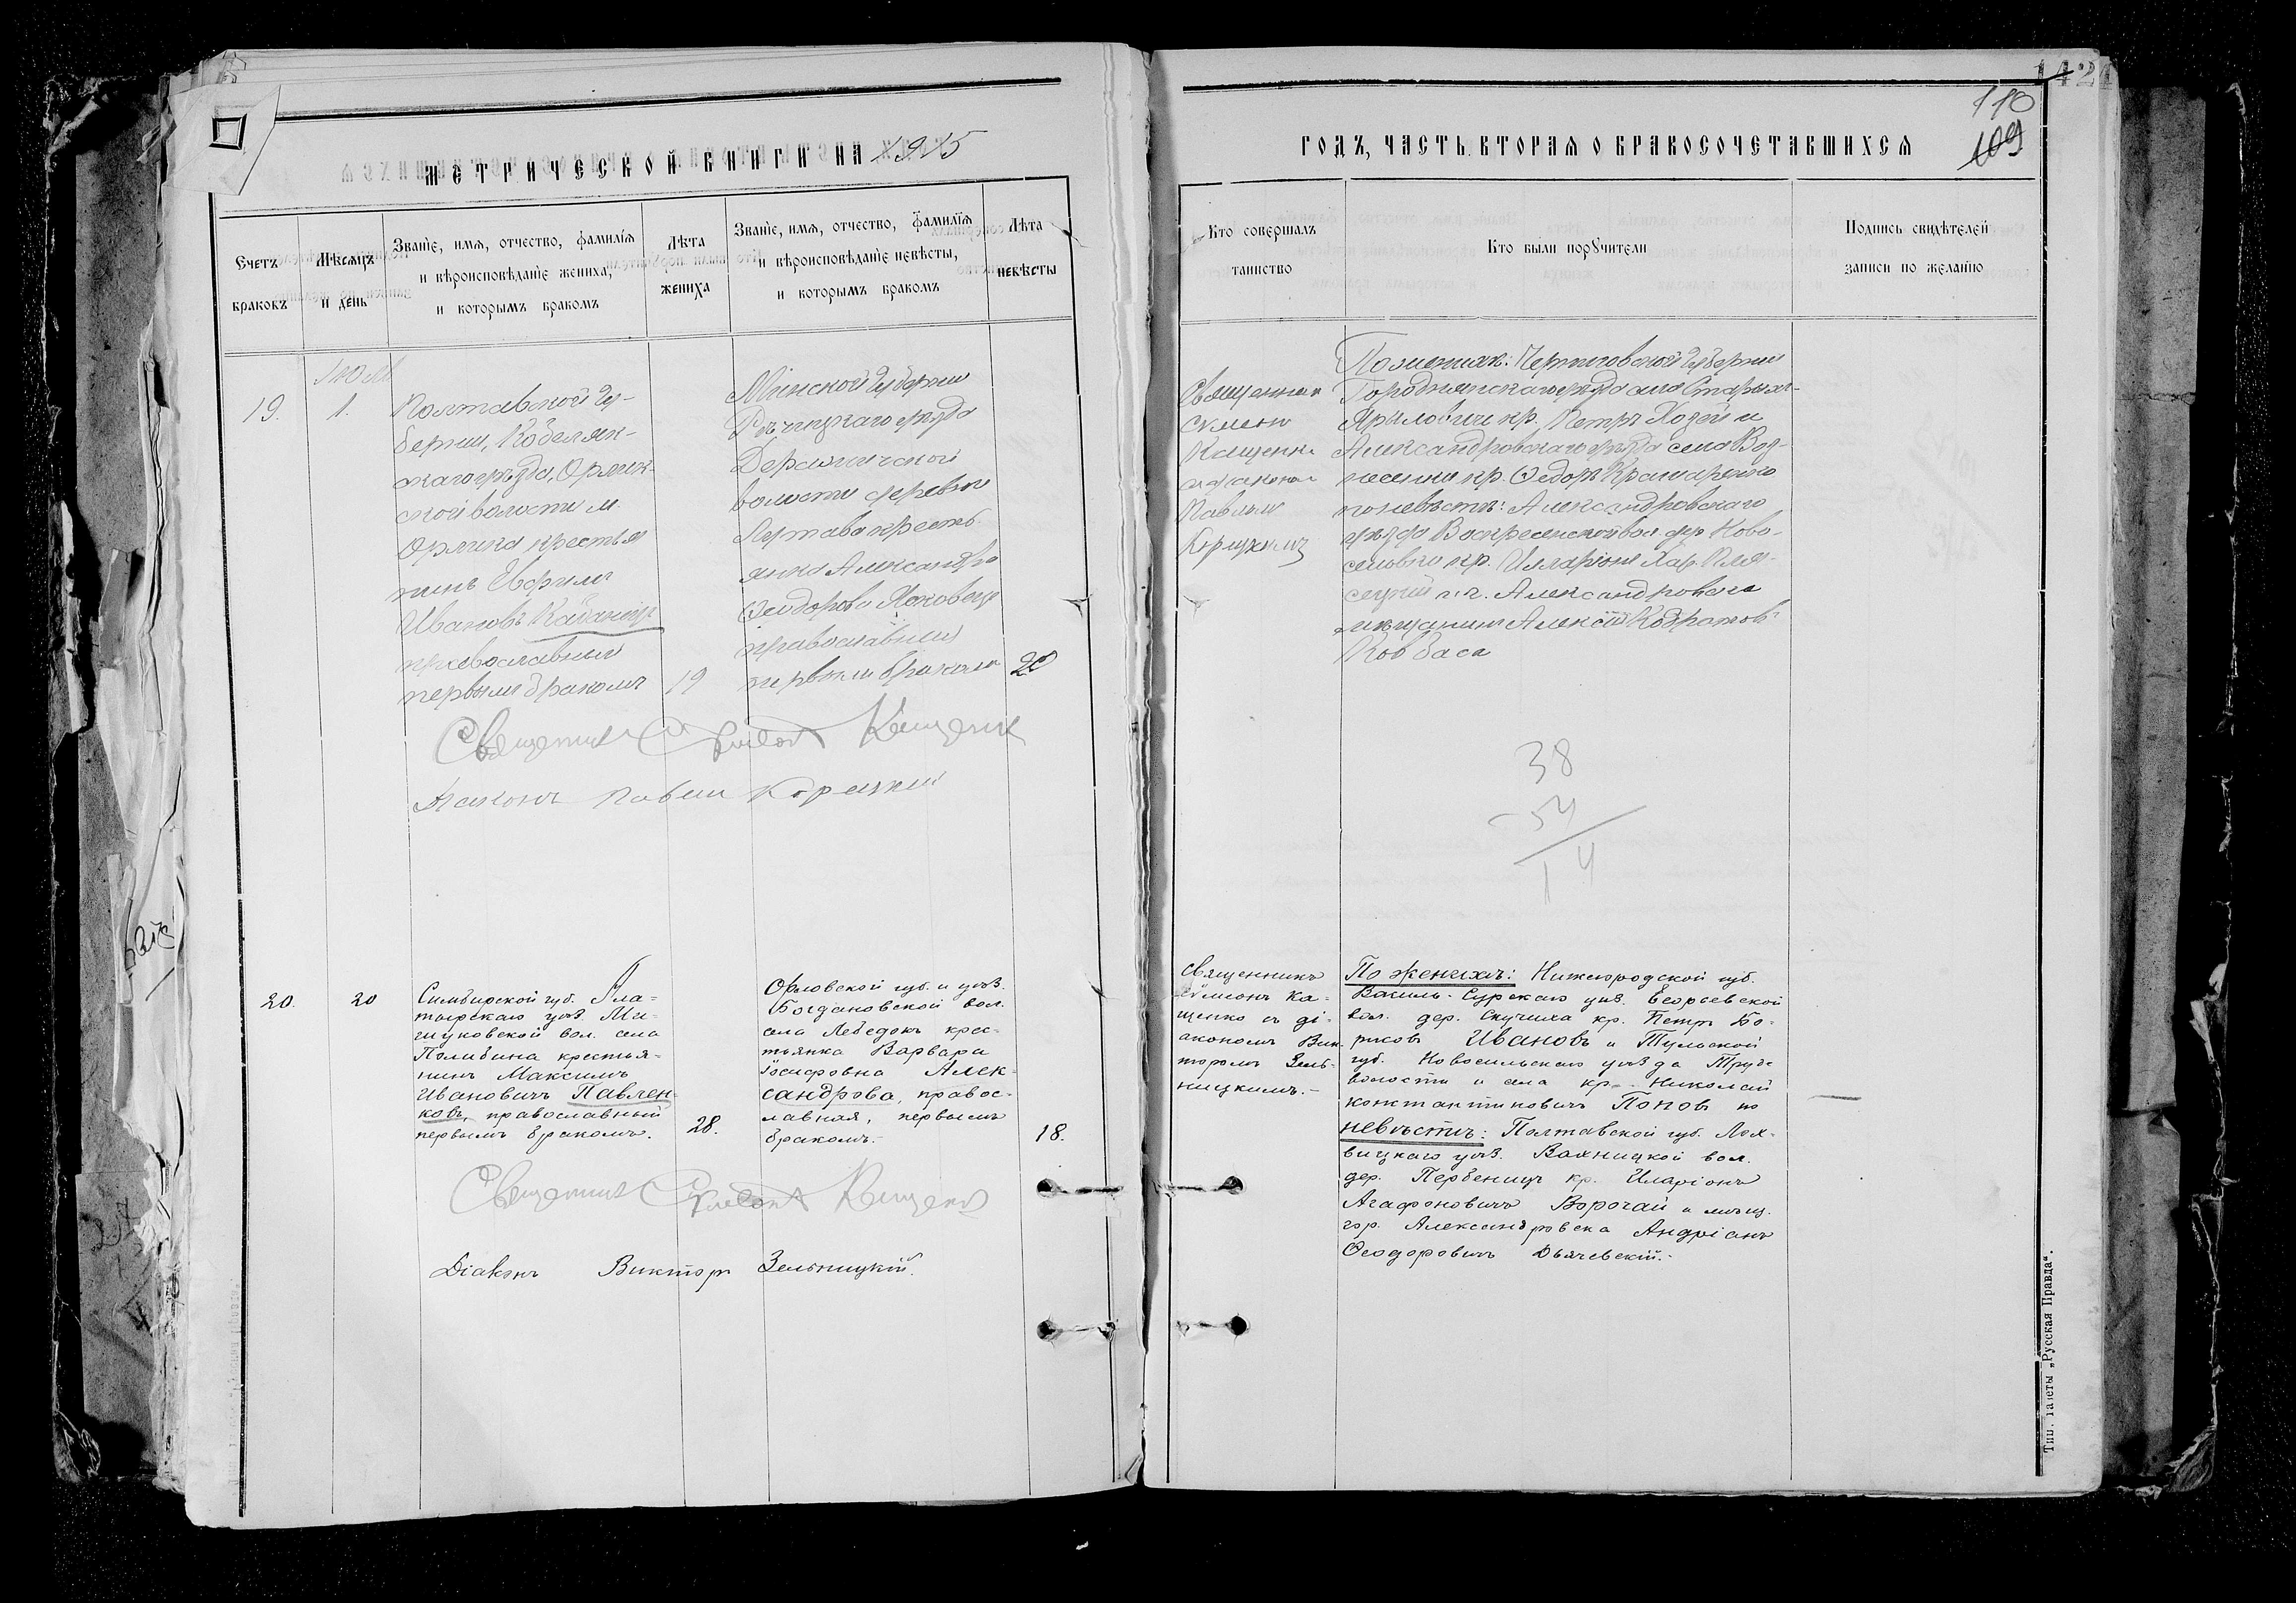 142
110
109
МЕТРИЧЕСКОЙ КНИГИ НА 1915
ГОДЪ, ЧАСТЬ ВТОРАЯ О БРАКОСОЧЕТАВШИХСЯ
Счетъ
браковъ
Мѣсяцъ
и день
Званіе, имя, отчество, фамилія
и вѣроисповѣданіе жениха,
и которымъ бракомъ
Лѣта
жениха
Званіе, имя, отчество, фамилія
и вѣроисповѣданіе невѣсты,
и которымъ бракомъ
Лѣта
невѣсты
Кто совершалъ
таинство
Кто были поручители
Подпись свидѣтелей
записи по желанію
19.
1.
Полтавской Гу-
берніи, Кобеляк-
скаго уѣзда, Орлик-
ской волости м.
Орлика крестья
нинъ Евфимъ
Ивановъ
православный
первымъ бракомъ
19
Минской Губерніи
Рѣчицкаго уѣзда
волости деревни
кресть
янка Александра
Феодорова
православная
первымъ бракомъ
20
Священник
Симеон
Кащенко
Павлом
Корицким
Черниговской Губерніи
Городнянскаго уѣзда села Старых-
Ярыловичи кр. Петръ и
Александровскаго уѣзда села Воз-
несенки кр. Ѳедоръ Крамаренко
по невѣстѣ: Александровскаго
уѣзда Воскресенской вол дер Ново-
кр. Илларіонъ Хар.
Александровскій
мѣщанинъ Алексѣй
Ковбаса
Священник Симеон Кащенко
Діаконъ Павел Корицкий
38
-54
14
20.
20
Симбирской губ. Ала=
тырскаго уѣз. Ми=
шуковской вол. села
Полибина крестья=
нинъ Максимъ
Ивановичъ Павлен=
ковъ, православный
первымъ бракомъ.
28.
Орловской губ. и уѣз.
Богдановской вол.
села Лебедокъ крес=
тьянка Варвара
Іосифовна Алек=
сандрова, правос=
лавная, первымъ
бракомъ.-
18.
Священникъ
Сѵмеонъ Ка=
щенко съ ді=
акономъ Вик-
торомъ Зель-
ницкимъ.-
По женихѣ: Нижегородской губ.
Василь-Сурскаго уѣз. Егорьевской
вол. дер. Скучиха кр. Петръ Бо=
рисовъ Ивановъ и Тульской
губ. Новосильскаго уѣзда Труды
волости и села кр. Николай
Константиновичъ Поповъ по
невѣстѣ: Полтавской губ. Лох-
вицкаго уѣз. вол.
дер. кр. Иларіонъ
Агафоновичъ Ворочай и мѣщ.
гор. Александровска Андріанъ
Ѳеодоровичъ Дьячевскій.-
Священник Симеон Кащенко
Діаконъ Викторъ Зельницкій.
Тип. газеты „Русская Правда“.